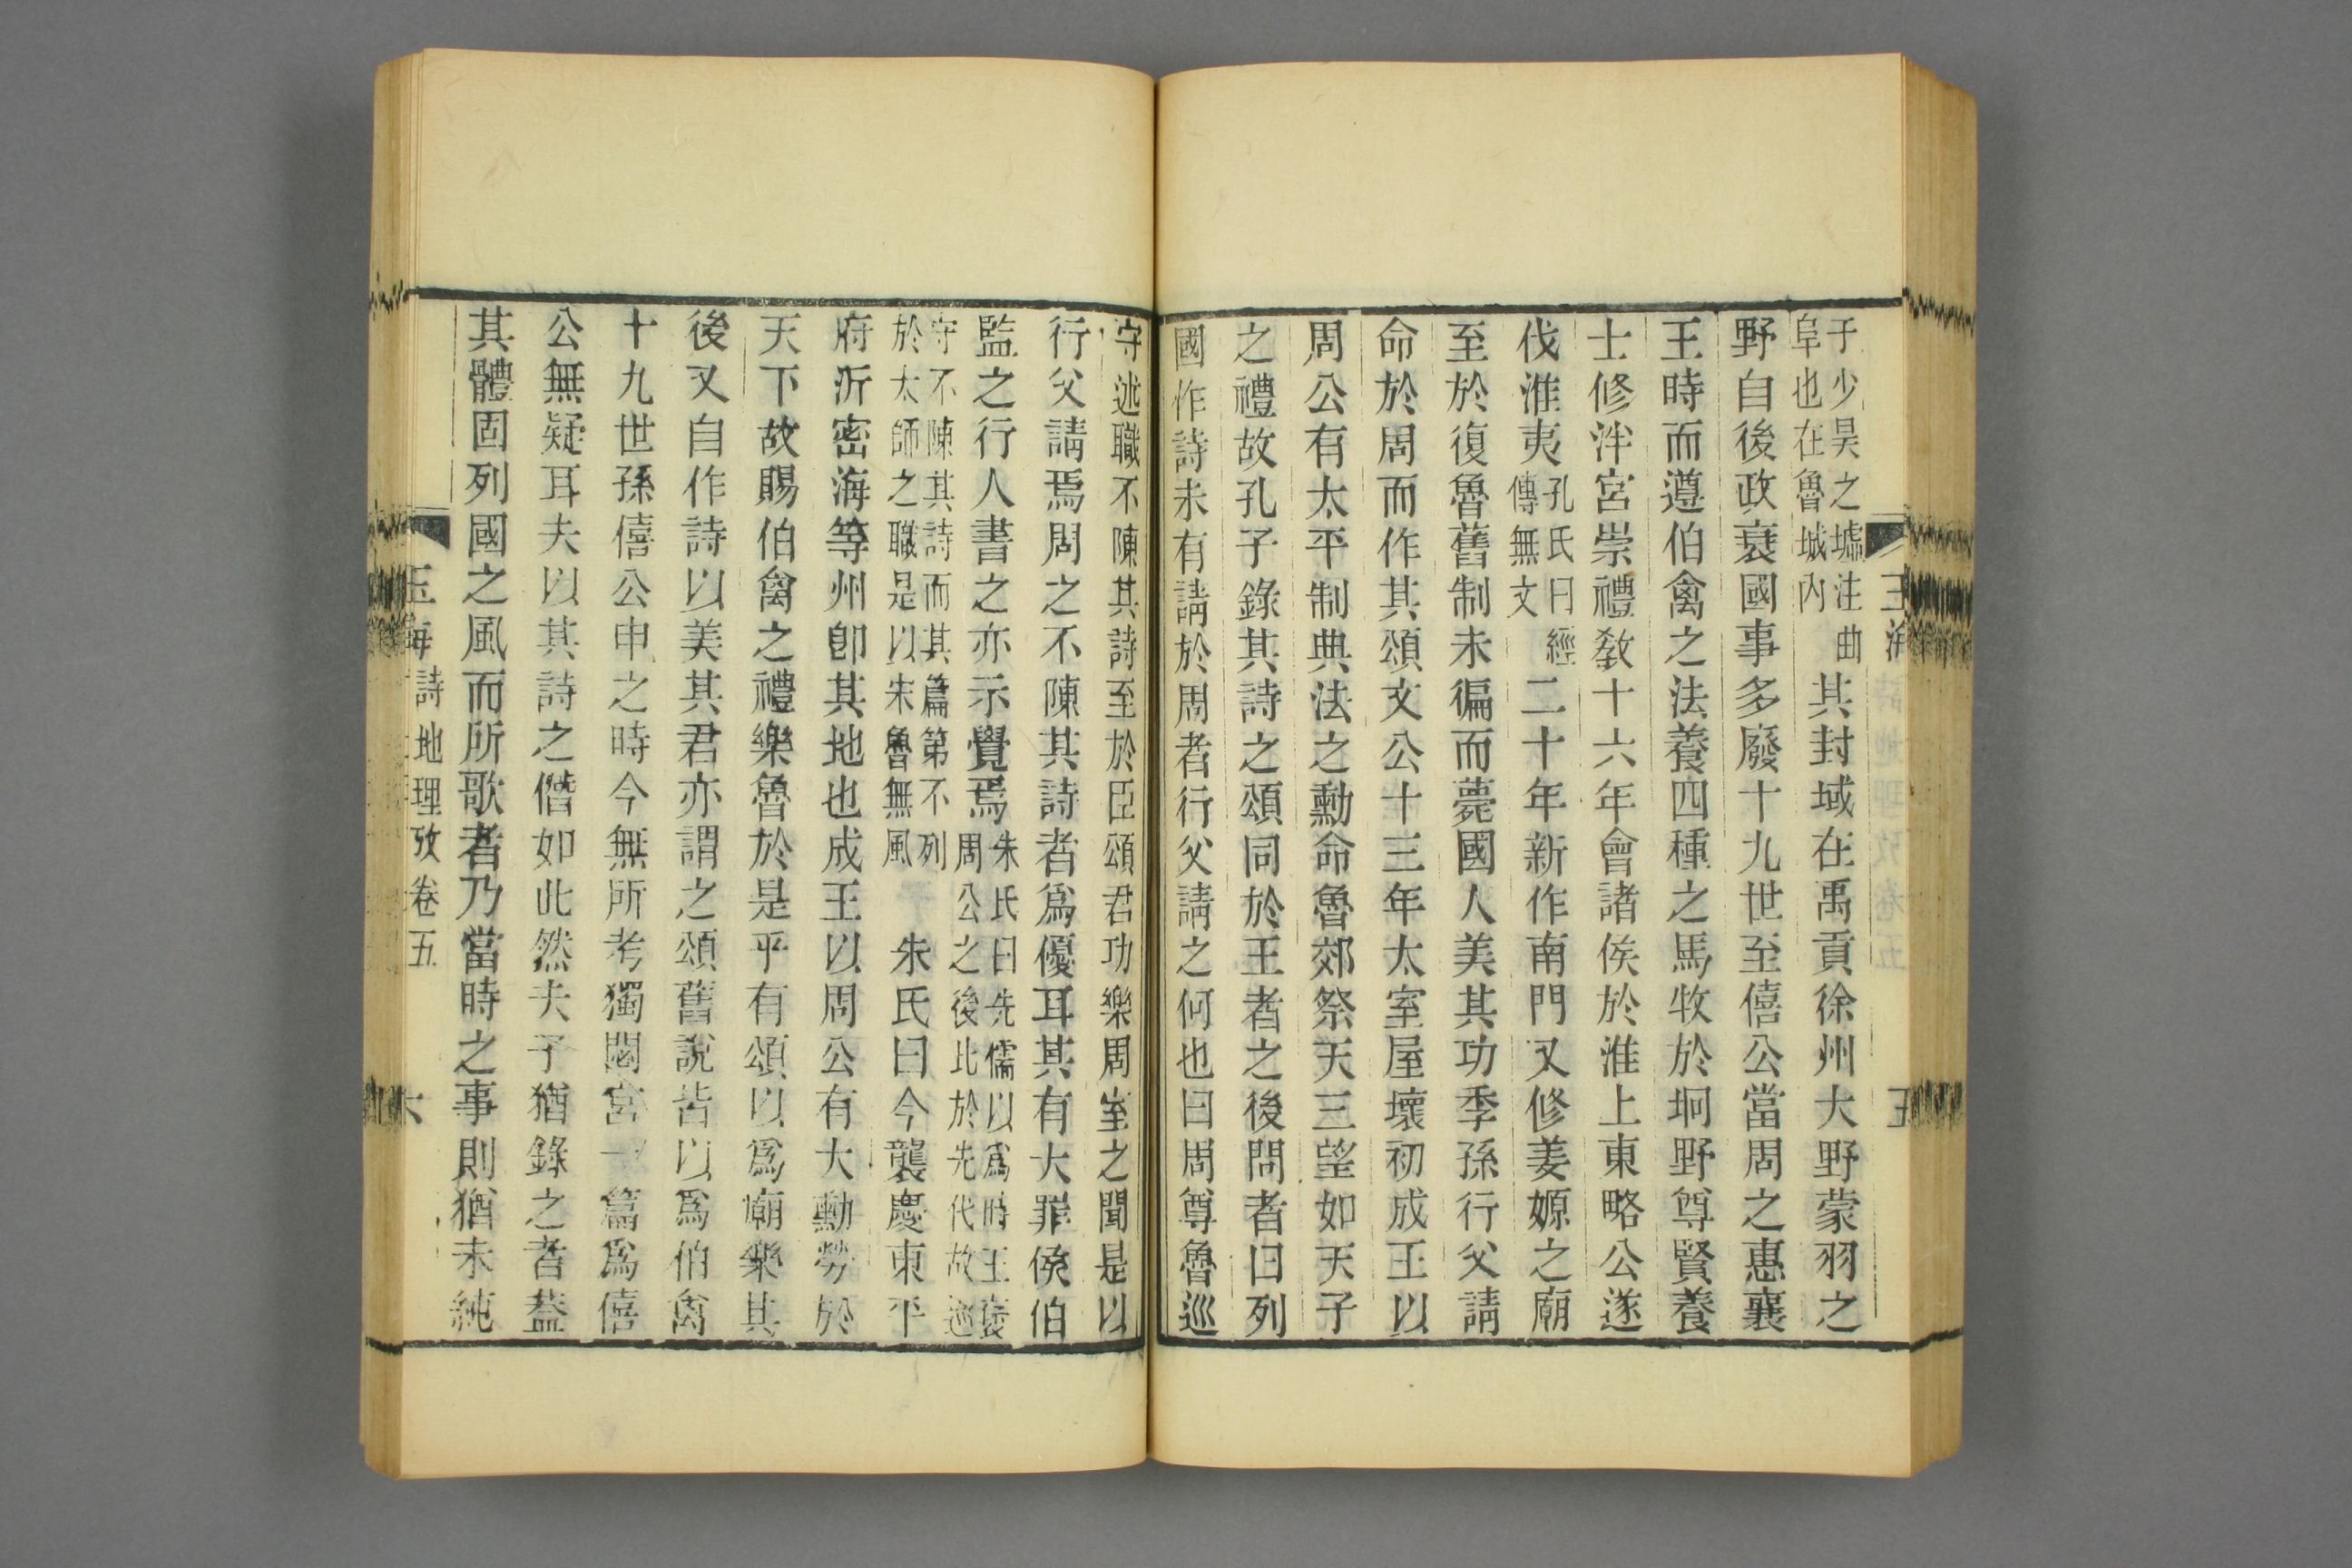 于少昊之墟注曲
阜也在魯城內
其封域在禹貢徐州大野蒙羽之
野自後政衰國事多廢十九世至僖公當周之惠襄
王時而遵伯禽之法養四種之馬牧於坰野尊賢養
士修泮宮崇禮敎十六年會諸侯於淮上東略公遂
伐淮夷
孔氏曰經
傳無文
二十年新作南門又修姜嫄之廟
至於復魯舊制未徧而薨國人美其功季孫行父請
命於周而作其頌文公十三年太室屋壞初成王以
周公有太平制典法之勳命魯郊祭天三望如天子
之禮故孔子錄其詩之頌同於王者之後問者曰列
國作詩未有請於周者行父請之何也曰周尊魯巡
守述職不陳其詩至於臣頌君功樂周室之聞是以
行父請焉周之不陳其詩者爲優耳其有大罪侯伯
監之行人書之亦示覺焉
朱氏曰先儒以爲時王褒
周公之後比於先代故巡
守不陳其詩而其篇第不列
於太師之職是以宋魯無風
朱氏曰今襲慶東平
府沂密海等州卽其地也成王以周公有大勳勞於
天下故賜伯禽之禮樂魯於是乎有頌以爲廟樂其
後又自作詩以美其君亦謂之頌舊說皆以爲伯禽
十九世孫僖公申之時今無所考獨閟宮一篇爲僖
公無疑耳夫以其詩之僭如此然夫子猶錄之者蓋
其體固列國之風而所歌者乃當時之事則猶未純
玉海 詩地理攷卷五 六